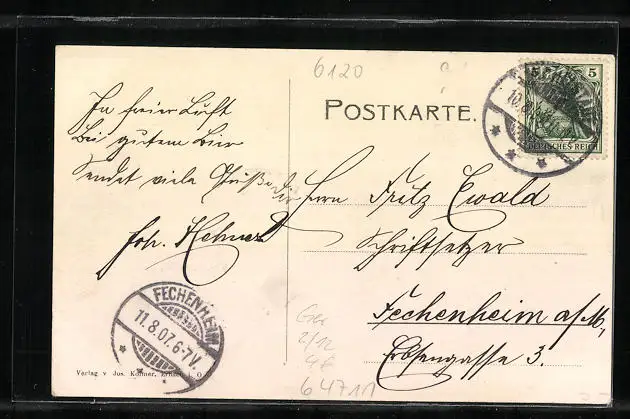 6120
POSTKARTE.
5 5
DEUTSCHES REICH
10.8
In freier Luft
bei gutem Bier
sendet viele Grüße dir
Joh.
Herrn Fritz Ewald
Schriftsetzer
Fechenheim a/M,
Erbsengasse 3.
FECHENHEIM
11.8.07.6-7V.
Verlag v Jos.
2/12
64711